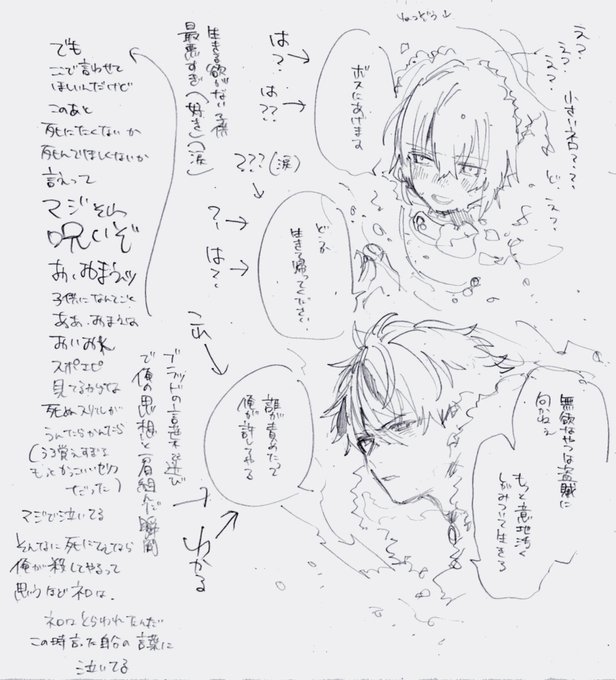 え？
え？
え？
小さいネロ？？
ど、え？
は？
は？？
ボスにあげます
生きる欲がない子供
最悪すぎ（好き）（涙）
？？？（涙）
？
は？
どうか
生きて帰ってください
無欲なやつは盗賊に
向かねえ
もっと意地汚く
しがみついて生きろ
誰が責めたって
俺が許してやる
ブラッドの言葉を選び
で俺の思想と肩組んだ瞬間
わかる
でも
ここで言わせて
ほしいんだけど
このあと
死にたくないか
死んでほしくないか
言えって
マジそれ
呪いぞ
あ、おまえッ
子供になんてこと
ああ、おまえは
スポエピ
見てるからな
死ぬスリルが
うんたらかんたら
（うろ覚えすぎる
もっとかっこいいセリフ
だった）
マジで泣いてる
そんなに死にてえなら
俺が殺してやるって
思うほどネロは、
ネロはとらわれたんだ
この時言った自分の言葉に
泣いてる